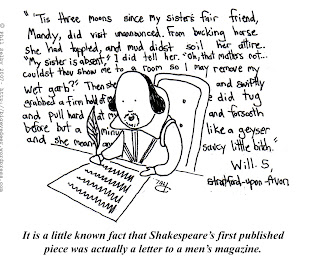 "'Tis three moons since my sister's fair friend,
Mandy, did visit unannounced. From bucking horse
she had toppled, and mud didst soil her attire.
"My sister is absent," I did tell her. "Oh, that matters not...
couldst thou show me to a room so I may remove my
wet garb?" Then she and swiftly
grabbed a firm hold of did tug
and pull hard at m and forsooth
before but a minu like a geyser
and she mean saucy little bitch."
Will S,
Stratford-upon-Avon
It is a little known fact that Shakespeare's first published
piece was actually a letter to a men's magazine.